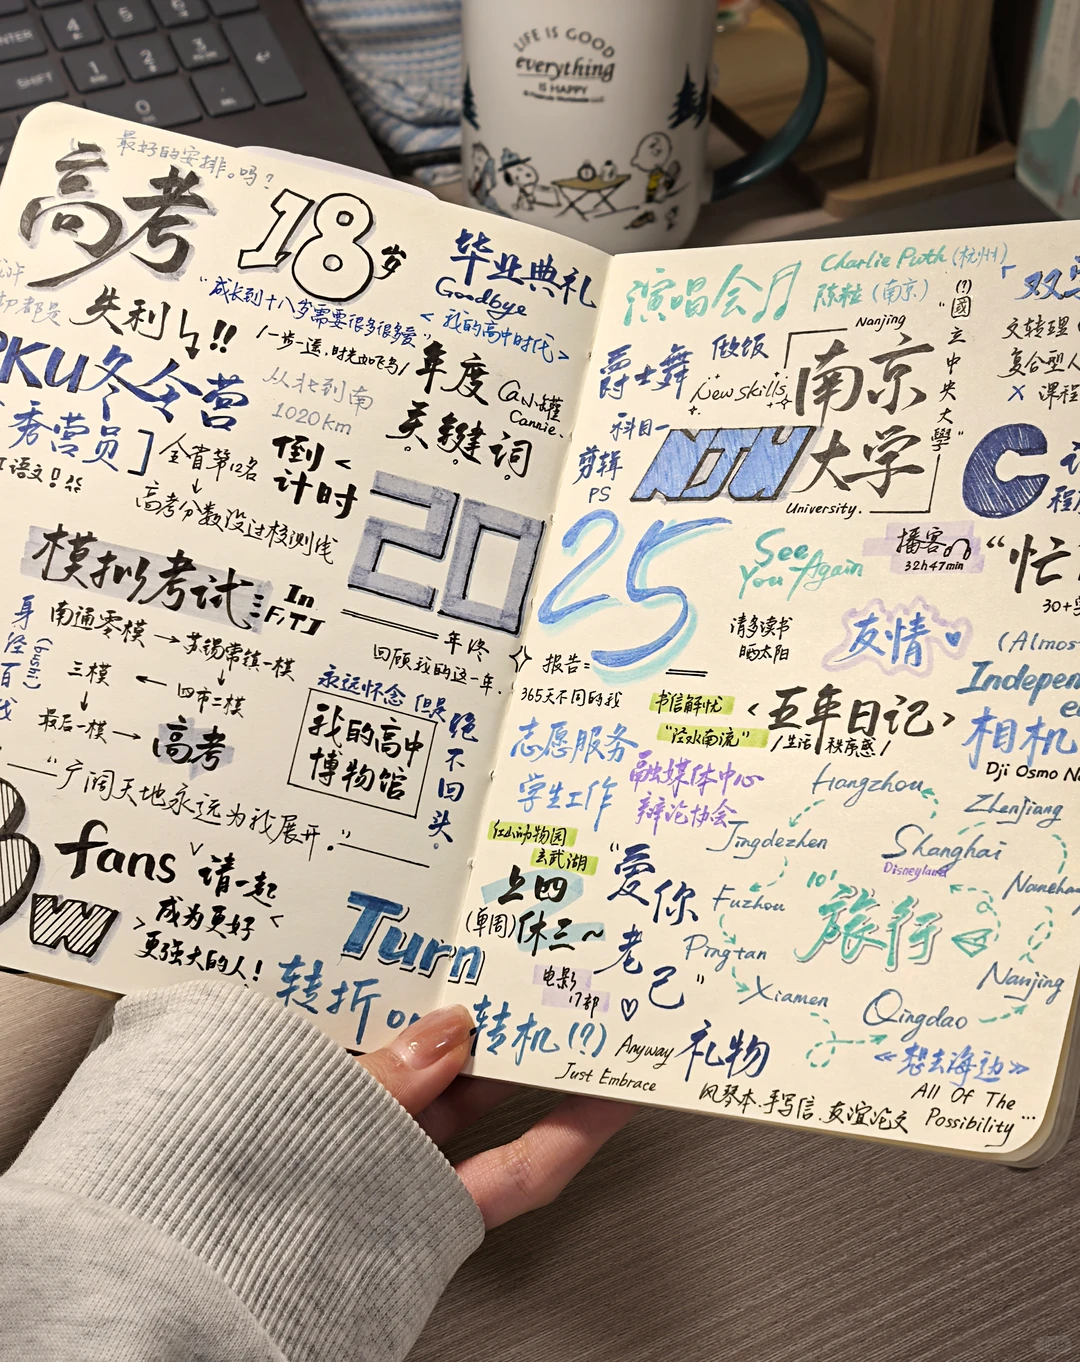 ENTER
SHIFT
4
5
6
1
2
3
0
LIFE IS GOOD
everything
IS HAPPY
最好的安排。吗？
高考
18岁
失利!!
"成长到十八岁需要很多很多爱"
/一步一遥,时光如飞鸟/
毕业典礼
Goodbye
<我的高中时代>
PKU冬令营
秀营员]
语文!
全省第12名
高考分数没过校测线
从北到南
1020km
倒计时
年度
关键词
Ca小罐
Cannie.
20
模拟考试
In
FJTJ
南通零模→苏锡常镇一模
四市二模
三模
最后一模→高考
身经百战
(bushi)
年终
回顾我的这一年.
永远怀念 但是绝不回头。
我的高中
博物馆
—"广阔天地永远为我展开."—
fans
请一起
>成为更好<
更强大的人!
W
Turn
转折 or 转机(?)
演唱会
Charlie Puth (杭州)
陈粒 (南京)
爵士舞
做饭
New skills
科目一
剪辑
PS
Nanjing
南京
NJU大学
University.
"(?)國立中央大學"
文转理
复合型人
X 课程
C
25
报告=
365天不同的我
See
You Again
播客
32h47min
"忙
30+
请多读书
晒太阳
友情
(Almos
Indepen
书信解忧
"泾水南流"
<五年日记>
/生活 秩序感/
相机
Dji Osmo Na
志愿服务
学生工作
融媒体中心
辩论协会
红山动物园
玄武湖
上四
(单周)休三~
电影
17部
"爱你老己"
Hangzhou
Zhenjiang
Jingdezhen
Shanghai
Disneyland
Fuzhou
Pingtan
Xiamen
10'
旅行
Nanjing
Qingdao
《想去海边》
Anyway
Just Embrace
礼物
风琴本.手写信.友谊论文
All Of The
Possibility...